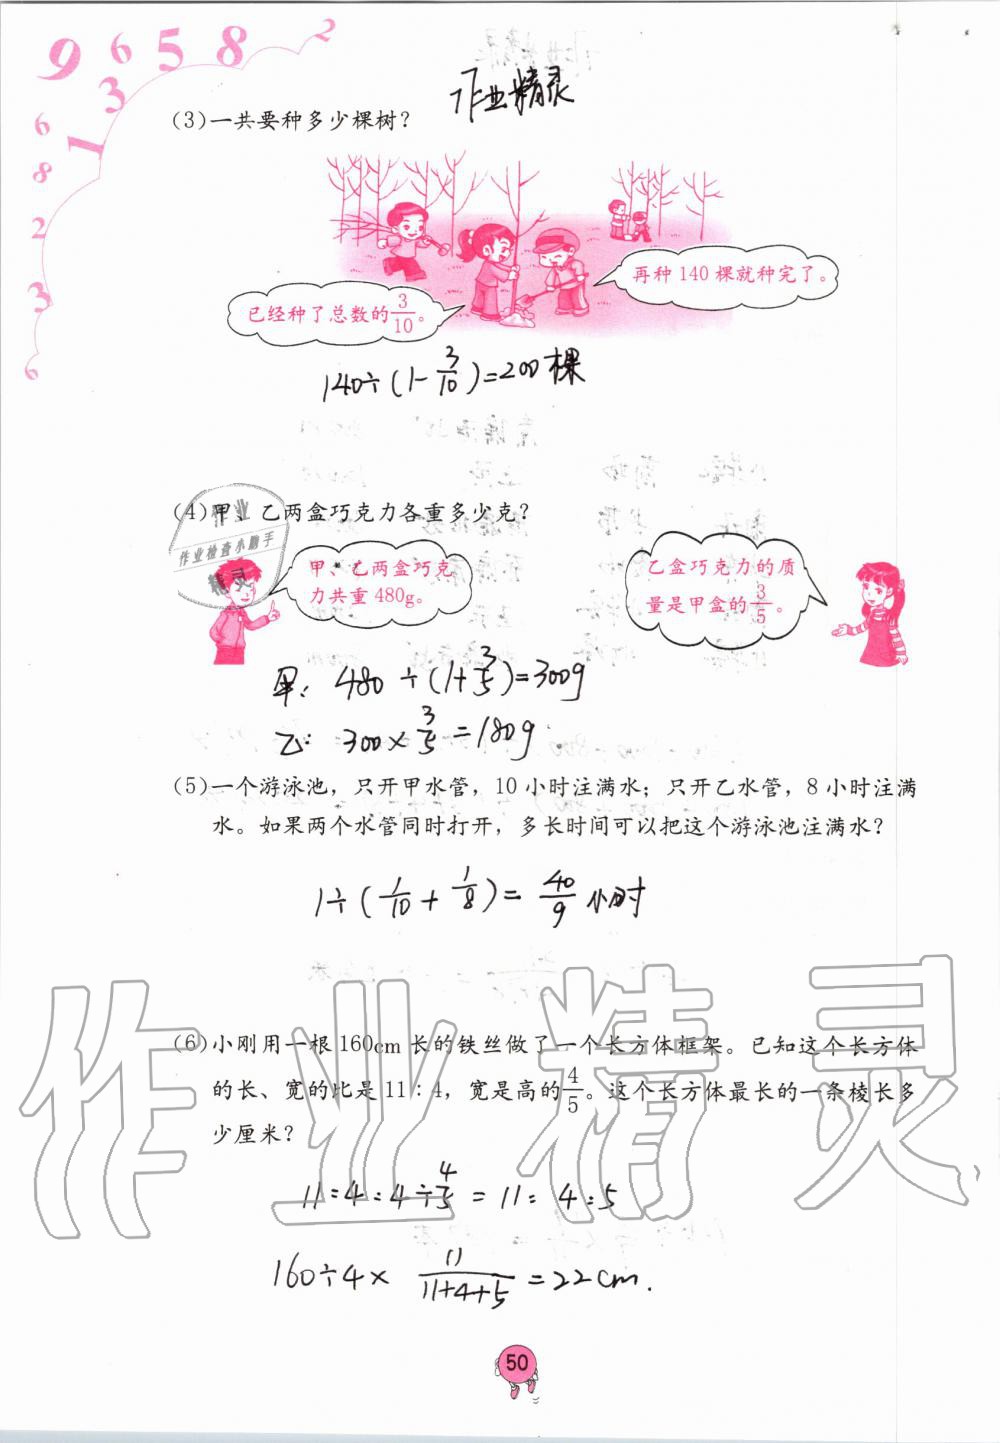 9 6 5 8 2
3
1
6
8
2
3
6
作业精灵
(3)一共要种多少棵树?
再种 140 棵就种完了。
已经种了总数的3/10。
140÷(1-3/10)=200棵
(4)甲、乙两盒巧克力各重多少克?
作业
作业检查小助手
精灵
甲、乙两盒巧克
力共重 480g。
乙盒巧克力的质
量是甲盒的3/5。
甲: 480÷(1+3/5)=300g
乙: 300×3/5=180g
(5)一个游泳池,只开甲水管,10 小时注满水;只开乙水管,8 小时注满
水。如果两个水管同时打开,多长时间可以把这个游泳池注满水?
1÷(1/10+1/8)=40/9小时
作业精灵
(6)小刚用一根160cm 长的铁丝做了一个长方体框架。已知这个长方体
的长、宽的比是 11∶4,宽是高的4/5。这个长方体最长的一条棱长多
少厘米?
11:4:4÷4/5=11:4:5
160÷4×11/(11+4+5)=22cm.
50